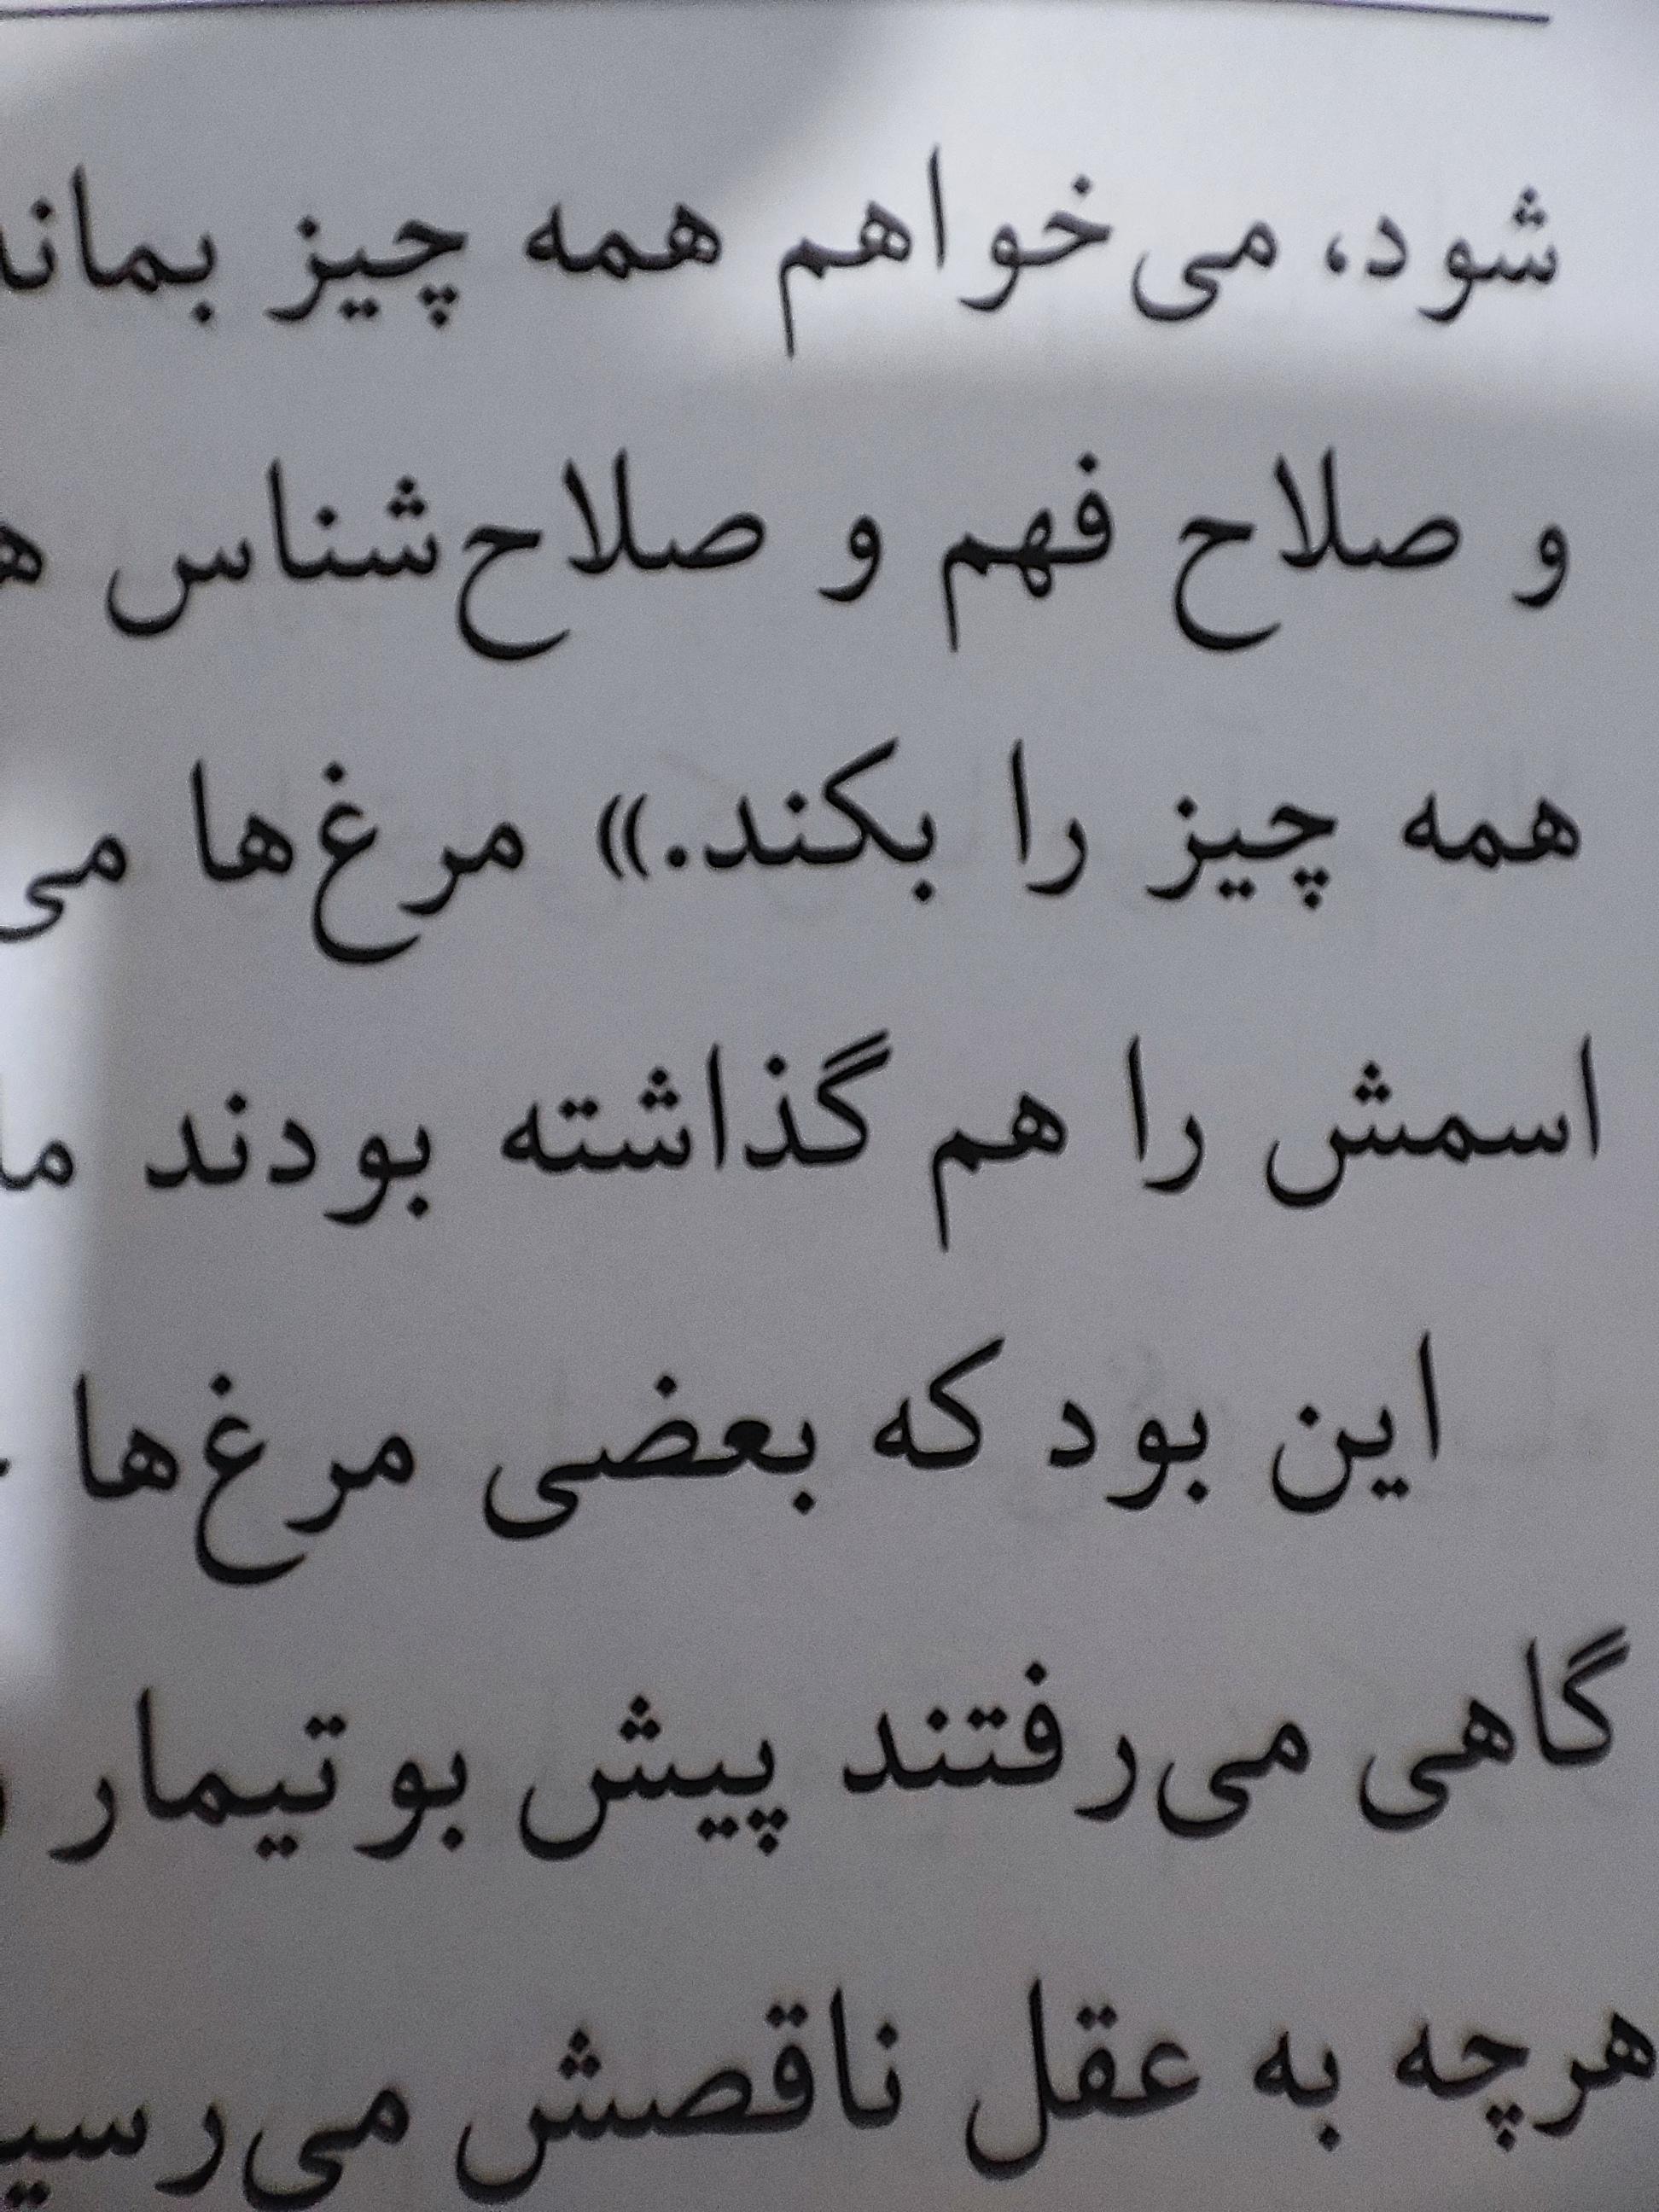 شود، می‌خواهم همه چیز بماند
و صلاح فهم و صلاح‌شناس
همه چیز را بکند.» مرغ‌ها می
اسمش را هم گذاشته بودند
این بود که بعضی مرغ‌ها
گاهی می‌رفتند پیش بوتیمار
هرچه به عقل ناقصش